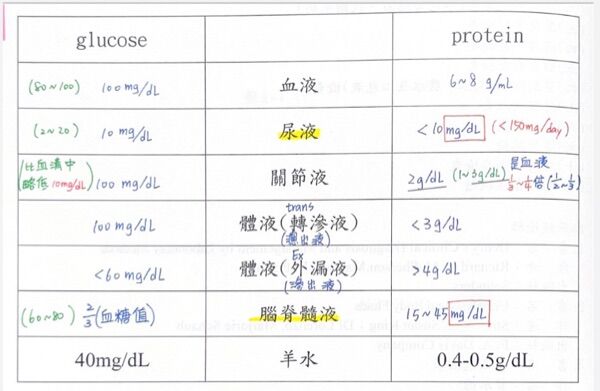 glucose protein
(80~100) 100mg/dL 血液 6~8 g/mL
(2~20) 10mg/dL 尿液 <10mg/dL (<150mg/day)
比血清中
略低10mg/dL 100mg/dL 關節液 2g/dL (1~3g/dL) 是血液
1/3~1/4倍(1/2~1/3)
trans
100mg/dL 體液(轉滲液) <3g/dL
(濾出液)
Ex
<60mg/dL 體液(外漏液) >4g/dL
(滲出液)
(60~80) 2/3(血糖值) 腦脊髓液 15~45mg/dL
40mg/dL 羊水 0.4-0.5g/dL